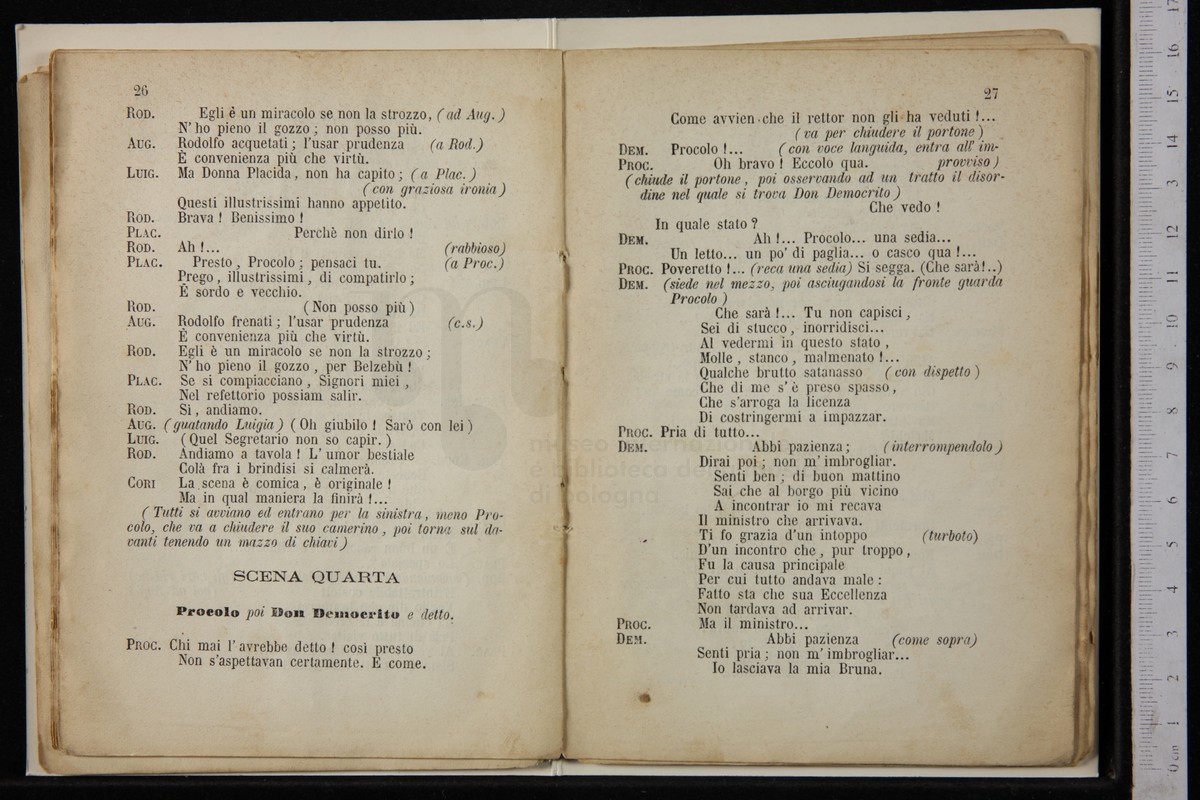 26
ROD. Egli è un miracolo se non la strozzo, (ad Aug.)
N' ho pieno il gozzo ; non posso più.
AUG. Rodolfo acquetati ; l'usar prudenza (a Rod.)
È convenienza più che virtù.
LUIG. Ma Donna Placida, non ha capito ; (a Plac.)
(con graziosa ironia)
Questi illustrissimi hanno appetito.
ROD. Brava ! Benissimo !
PLAC. Perchè non dirlo !
ROD. Ah !... (rabbioso)
PLAC. Presto, Procolo ; pensaci tu. (a Proc.)
Prego, illustrissimi, di compatirlo ;
È sordo e vecchio.
ROD. (Non posso più)
AUG. Rodolfo frenati ; l'usar prudenza (c.s.)
È convenienza più che virtù.
ROD. Egli è un miracolo se non la strozzo ;
N' ho pieno il gozzo, per Belzebù !
PLAC. Se si compiacciano, Signori miei,
Nel refettorio possiam salir.
ROD. Sì, andiamo.
AUG. (guatando Luigia) (Oh giubilo ! Sarò con lei)
LUIG. (Quel Segretario non so capir.)
ROD. Andiamo a tavola ! L' umor bestiale
Colà fra i brindisi si calmerà.
CORI La scena è comica, è originale !
Ma in qual maniera la finirà !...
(Tutti si avviano ed entrano per la sinistra, meno Pro-
colo, che va a chiudere il suo camerino, poi torna sul da-
vanti tenendo un mazzo di chiavi)
SCENA QUARTA
Procolo poi Don Democrito e detto.
PROC. Chi mai l' avrebbe detto ! così presto
Non s'aspettavan certamente. E come.
27
Come avvien che il rettor non gli ha veduti !...
(va per chiudere il portone)
DEM. Procolo !... (con voce languida, entra all' im-
PROC. Oh bravo ! Eccolo qua. provviso)
(chiude il portone, poi osservando ad un tratto il disor-
dine nel quale si trova Don Democrito)
Che vedo !
In quale stato ?
DEM. Ah !... Procolo... una sedia...
Un letto... un po' di paglia... o casco qua !...
PROC. Poveretto !... (reca una sedia) Si segga. (Che sarà!..)
DEM. (siede nel mezzo, poi asciugandosi la fronte guarda
Procolo)
Che sarà !... Tu non capisci,
Sei di stucco, inorridisci...
Al vedermi in questo stato,
Molle, stanco, malmenato !...
Qualche brutto satanasso (con dispetto)
Che di me s' è preso spasso,
Che s'arroga la licenza
Di costringermi a impazzar.
PROC. Pria di tutto...
DEM. Abbi pazienza ; (interrompendolo)
Dirai poi ; non m' imbrogliar.
Senti ben ; di buon mattino
Sai che al borgo più vicino
A incontrar io mi recava
Il ministro che arrivava.
Ti fo grazia d'un intoppo (turboto)
D'un incontro che, pur troppo,
Fu la causa principale
Per cui tutto andava male :
Fatto sta che sua Eccellenza
Non tardava ad arrivar.
PROC. Ma il ministro...
DEM. Abbi pazienza (come sopra)
Senti pria ; non m' imbrogliar...
Io lasciava la mia Bruna.
museo internazionale
e biblioteca della
di bologna
0 cm 1 2 3 4 5 6 7 8 9 10 11 12 13 14 15 16 17